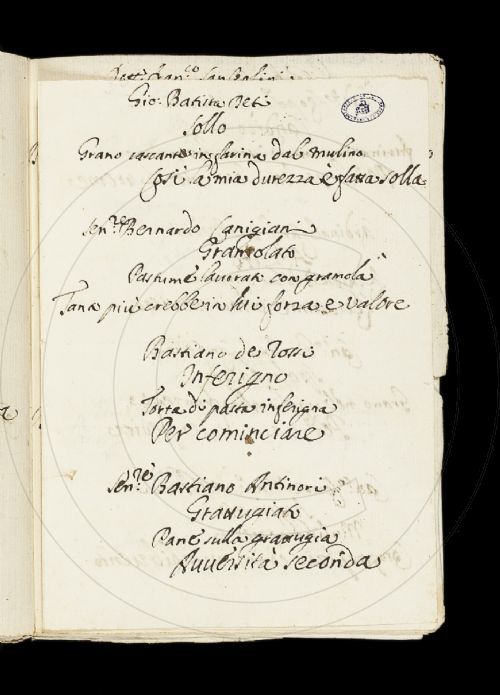 Gio: Batista Deti
Sollo
Grano cascante in farina dal Mulino
Così la mia durezza è fatta solla
Sen.re Bernardo Canigiani
Gramolato
Pastume lavorato con gramola
Tanta più crebbe in lui forza e valore
Bastiano de Rossi
Inferigno
Torta di pasta inferigna
Per cominciare
Sen.re Bastiano Antinori
Grattugiato
Pane sulla grattugia
Avversità seconda